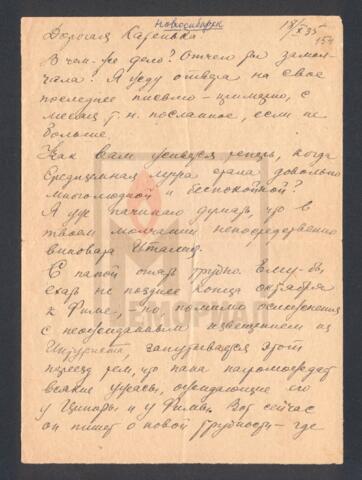 Новосибирск
18/X 35
154
Дорогая Катенька.
В чем же дело? Отчего ты замол-
чала? Я жду ответа на свое
последнее письмо – примерно, с
месяц т. н. посланное, если не
больше.
Как вам живется теперь, когда
Средиземная лужа стала довольно
многолюдной и беспокойной?
Я уже начинаю думать, что в
твоем молчании непосредственно
виновата Италия.
С папой опять трудно. Ему бы
ехать не позднее конца октября
к Фиме, но, помимо осложнения
с неожиданным известием из
Интуриста, запутывается этот
переезд тем, что папа нагромождает
всякие ужасы, ожидающие его
у Цип и у Фимы. Вот сейчас
он пишет о новой трудности – где
МЕМОРИАЛ